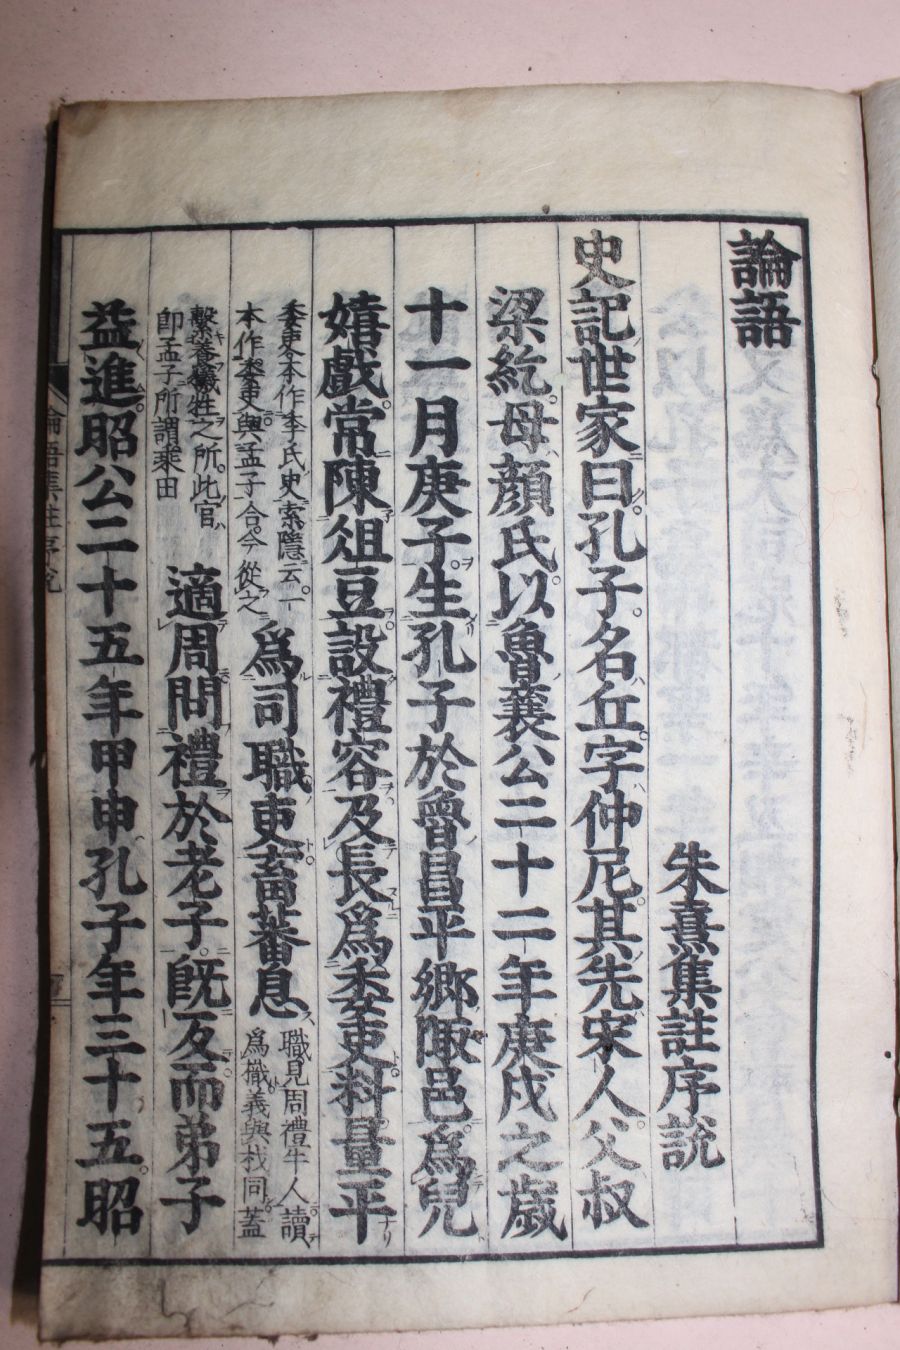 論語
朱熹集註序說
史記世家曰孔子名丘字仲尼其先宋人父叔
梁紇母顔氏以魯襄公二十二年庚戌之歲
十一月庚子生孔子於魯昌平鄉陬邑爲兒
嬉戲常陳俎豆設禮容及長爲委吏料量平
委吏本作季氏史索隱云一
本作委吏與孟子合今從之
爲司職吏畜蕃息
職見周禮牛人讀
爲樴義與杙同蓋
繫養犧牲之所此官
卽孟子所謂乘田
適周問禮於老子旣反而弟子
益進昭公二十五年甲申孔子年三十五昭
論語集註序說